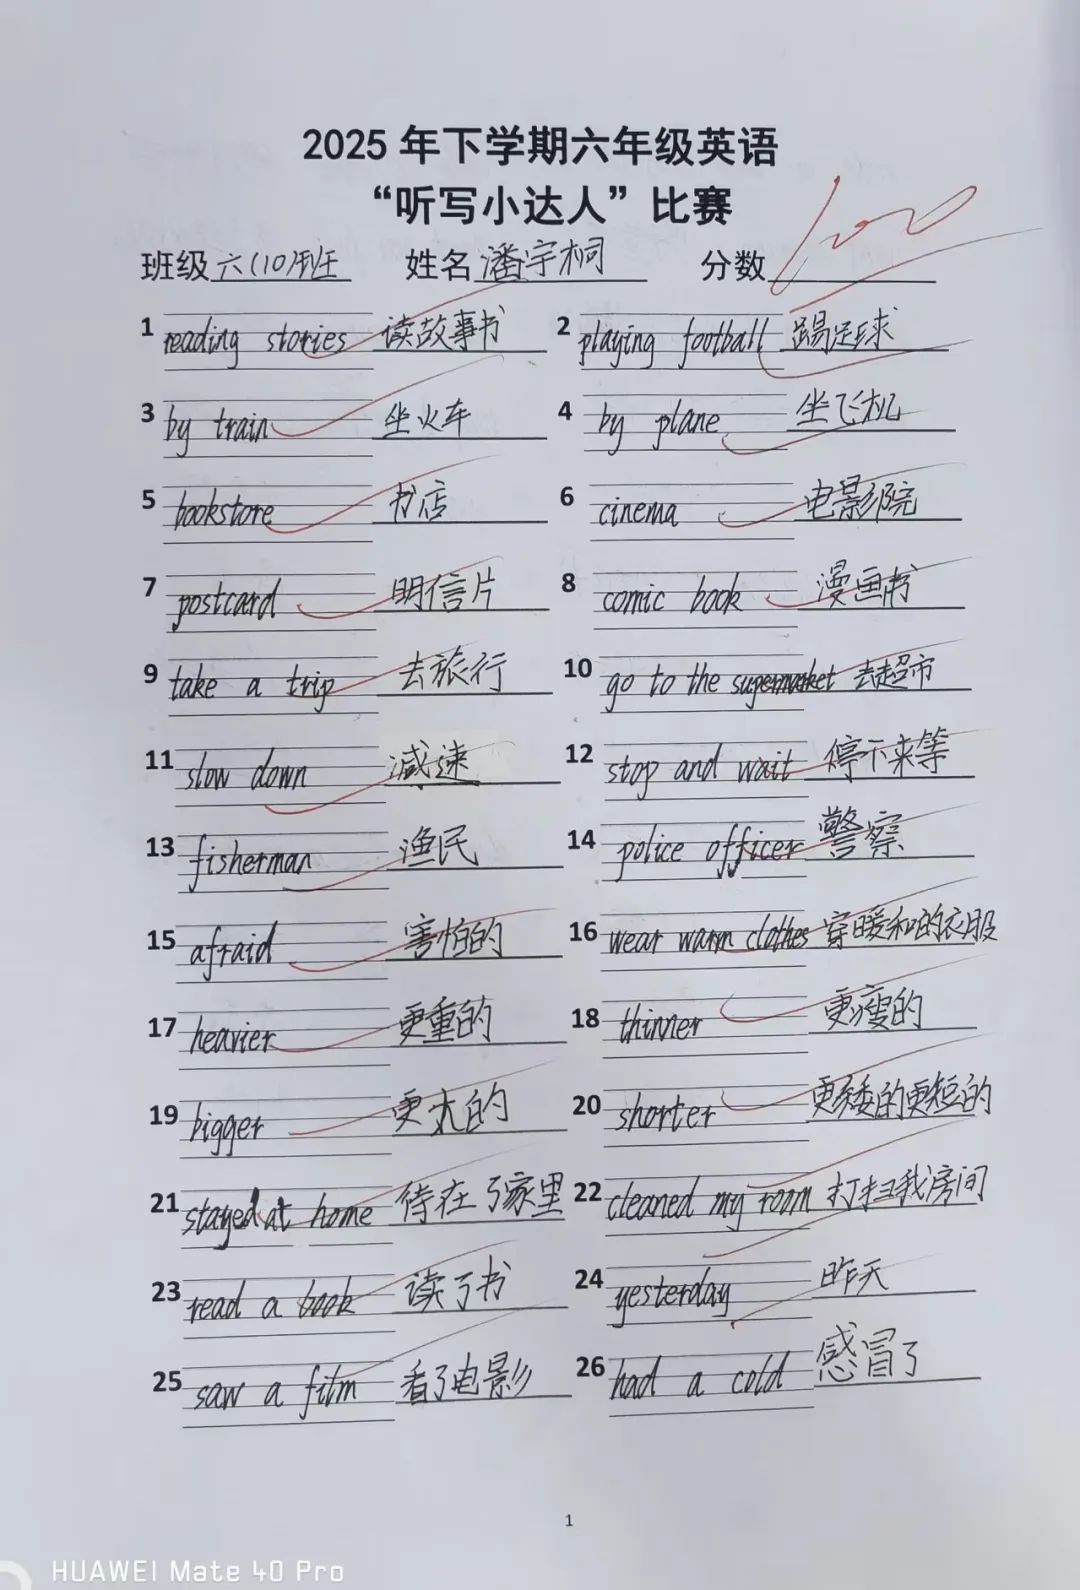 2025年下学期六年级英语
“听写小达人”比赛
班级 六(10)班 姓名 潘宇桐 分数 100
1 reading stories 读故事书 2 playing football 踢足球
3 by train 坐火车 4 by plane 坐飞机
5 bookstore 书店 6 cinema 电影院
7 postcard 明信片 8 comic book 漫画书
9 take a trip 去旅行 10 go to the supermarket 去超市
11 slow down 减速 12 stop and wait 停下来等
13 fisherman 渔民 14 police officer 警察
15 afraid 害怕的 16 wear warm clothes 穿暖和的衣服
17 heavier 更重的 18 thinner 更瘦的
19 bigger 更大的 20 shorter 更矮的更短的
21 stayed at home 待在了家里 22 cleaned my room 打扫我房间
23 read a book 读了书 24 yesterday 昨天
25 saw a film 看了电影 26 had a cold 感冒了
1
HUAWEI Mate 40 Pro